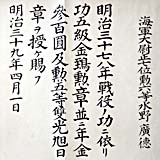 海軍大尉七位勲六等水野廣徳
明治三十七八年戦役ノ功ニ依リ
功五級金鵄勲章並ニ年金
参百圓及勲五等雙光旭日
章ヲ授ケ賜フ
明治三十九年四月一日